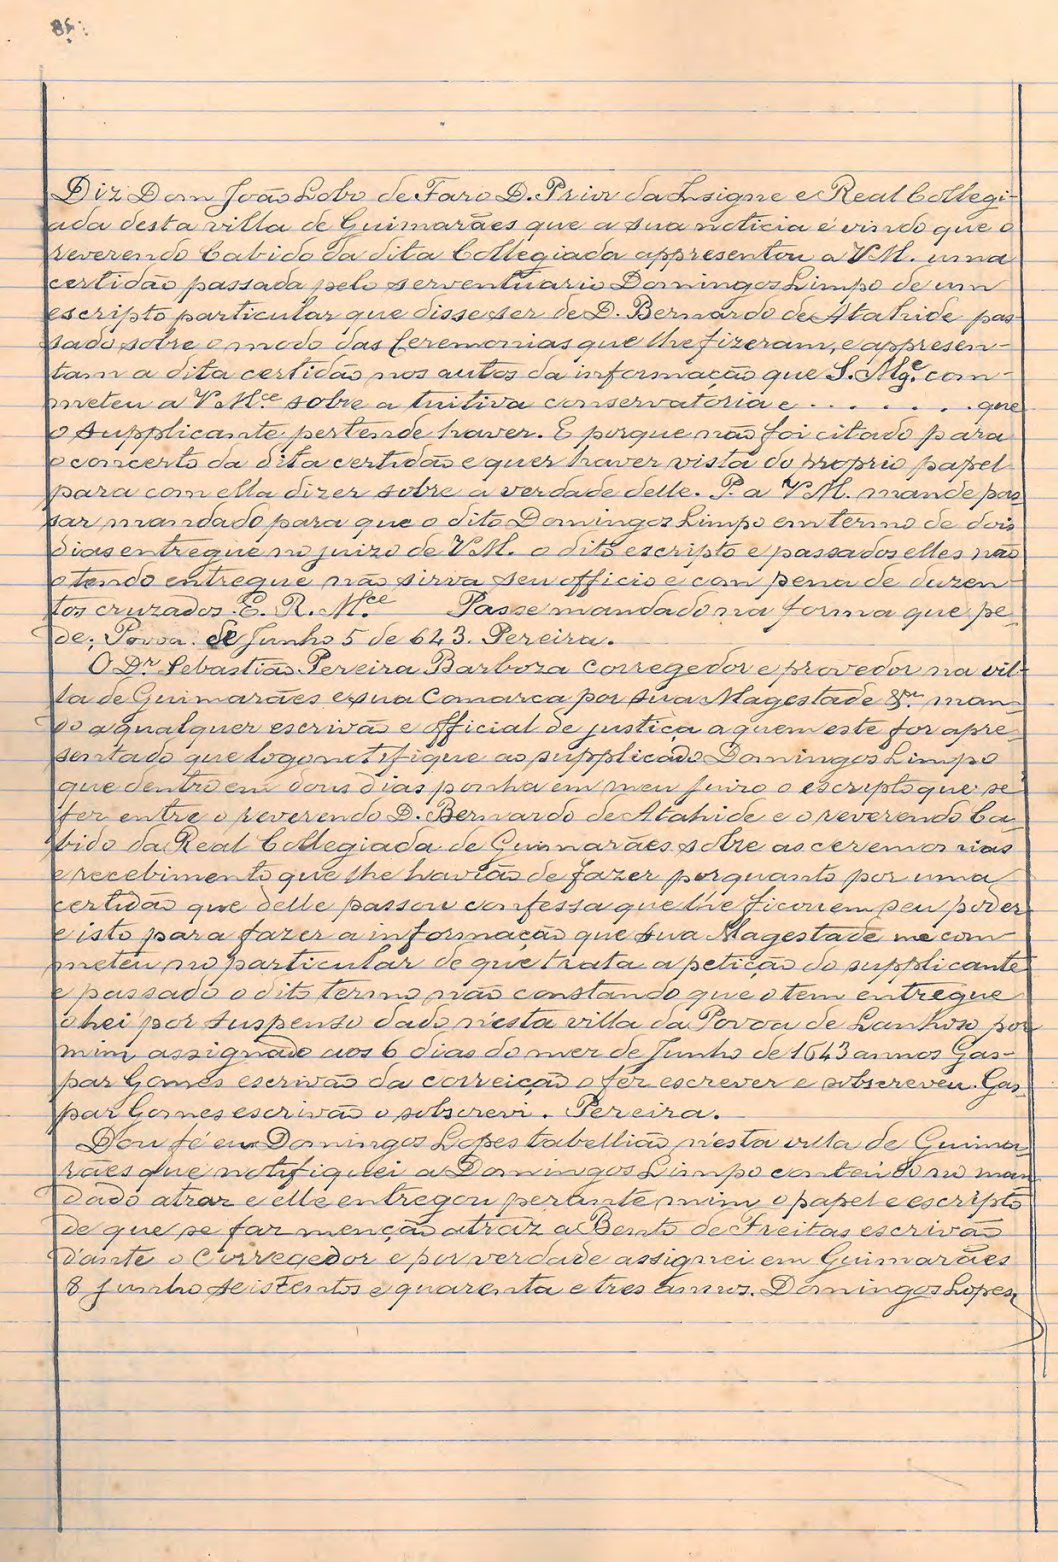 85
Diz Dom João Lobo de Faro D. Prior da Insigne e Real Collegi-
ada desta villa de Guimarães que a sua noticia é vindo que o
reverendo Cabido da dita Collegiada appresentou a V M. uma
certidão passada pelo serventuario Domingos Limpo de um
escripto particular que disse ser de D. Bernardo de Atahide pas-
sado sobre o modo das Ceremonias que lhe fizeram, e appresen-
tam a dita certidão nos autos da informação que S. Mg.e com-
meteu a V M.ce sobre a tuitiva conservatoria e . . . . . . . que
o Supplicante pertende haver. E porque não foi citado para
o concerto da dita certidão e quer haver vista do proprio papel
para com ella dizer sobre a verdade delle. P. a V M. mande pas-
sar mandado para que o dito Domingos Limpo em termo de dois
dias entregue no juizo de V M. o dito escripto e passados elles não
o tendo entregue não sirva seu officio e com pena de duzen-
tos cruzados. E. R. M.ce Passe mandado na forma que pe-
de; Povoa de Junho 5 de 643. Pereira.
O D.r Sebastião Pereira Barboza corregedor e provedor na vil-
la de Guimarães e sua Comarca por sua Magestade &.a man-
do a qualquer escrivão e official de justiça a quem este for apre-
sentado que logo notifique ao supplicado Domingos Limpo
que dentro em dous dias ponha em meu juizo o escripto que se
fez entre o reverendo D. Bernardo de Atahide e o reverendo Ca-
bido da Real Collegiada de Guimarães sobre as ceremonias
e recebimento que lhe havião de fazer porquanto por uma
certidão que delle passou confessa que lhe ficou em seu poder
e isto para fazer a informação que sua Magestade me com-
meteu no particular de que trata a petição do supplicante
e passado o dito termo não constando que o tem entregue
o hei por suspenso dado n'esta villa da Povoa de Lanhoso por
mim assignado aos 6 dias do mez de Junho de 1643 annos Gas-
par Gomes escrivão da correição o fez escrever e sobscreveu. Gas-
par Gomes escrivão o sobscrevi. Pereira.
Dou fé eu Domingos Lopes tabellião n'esta villa de Guima-
rães que notifiquei a Domingos Limpo conteudo no man-
dado atraz e elle entregou perante mim o papel e escripto
de que se faz menção atraz a Bento de Freitas escrivão
d'ante o Corregedor e por verdade assignei em Guimarães
8 Junho seiscentos e quarenta e tres annos. Domingos Lopes